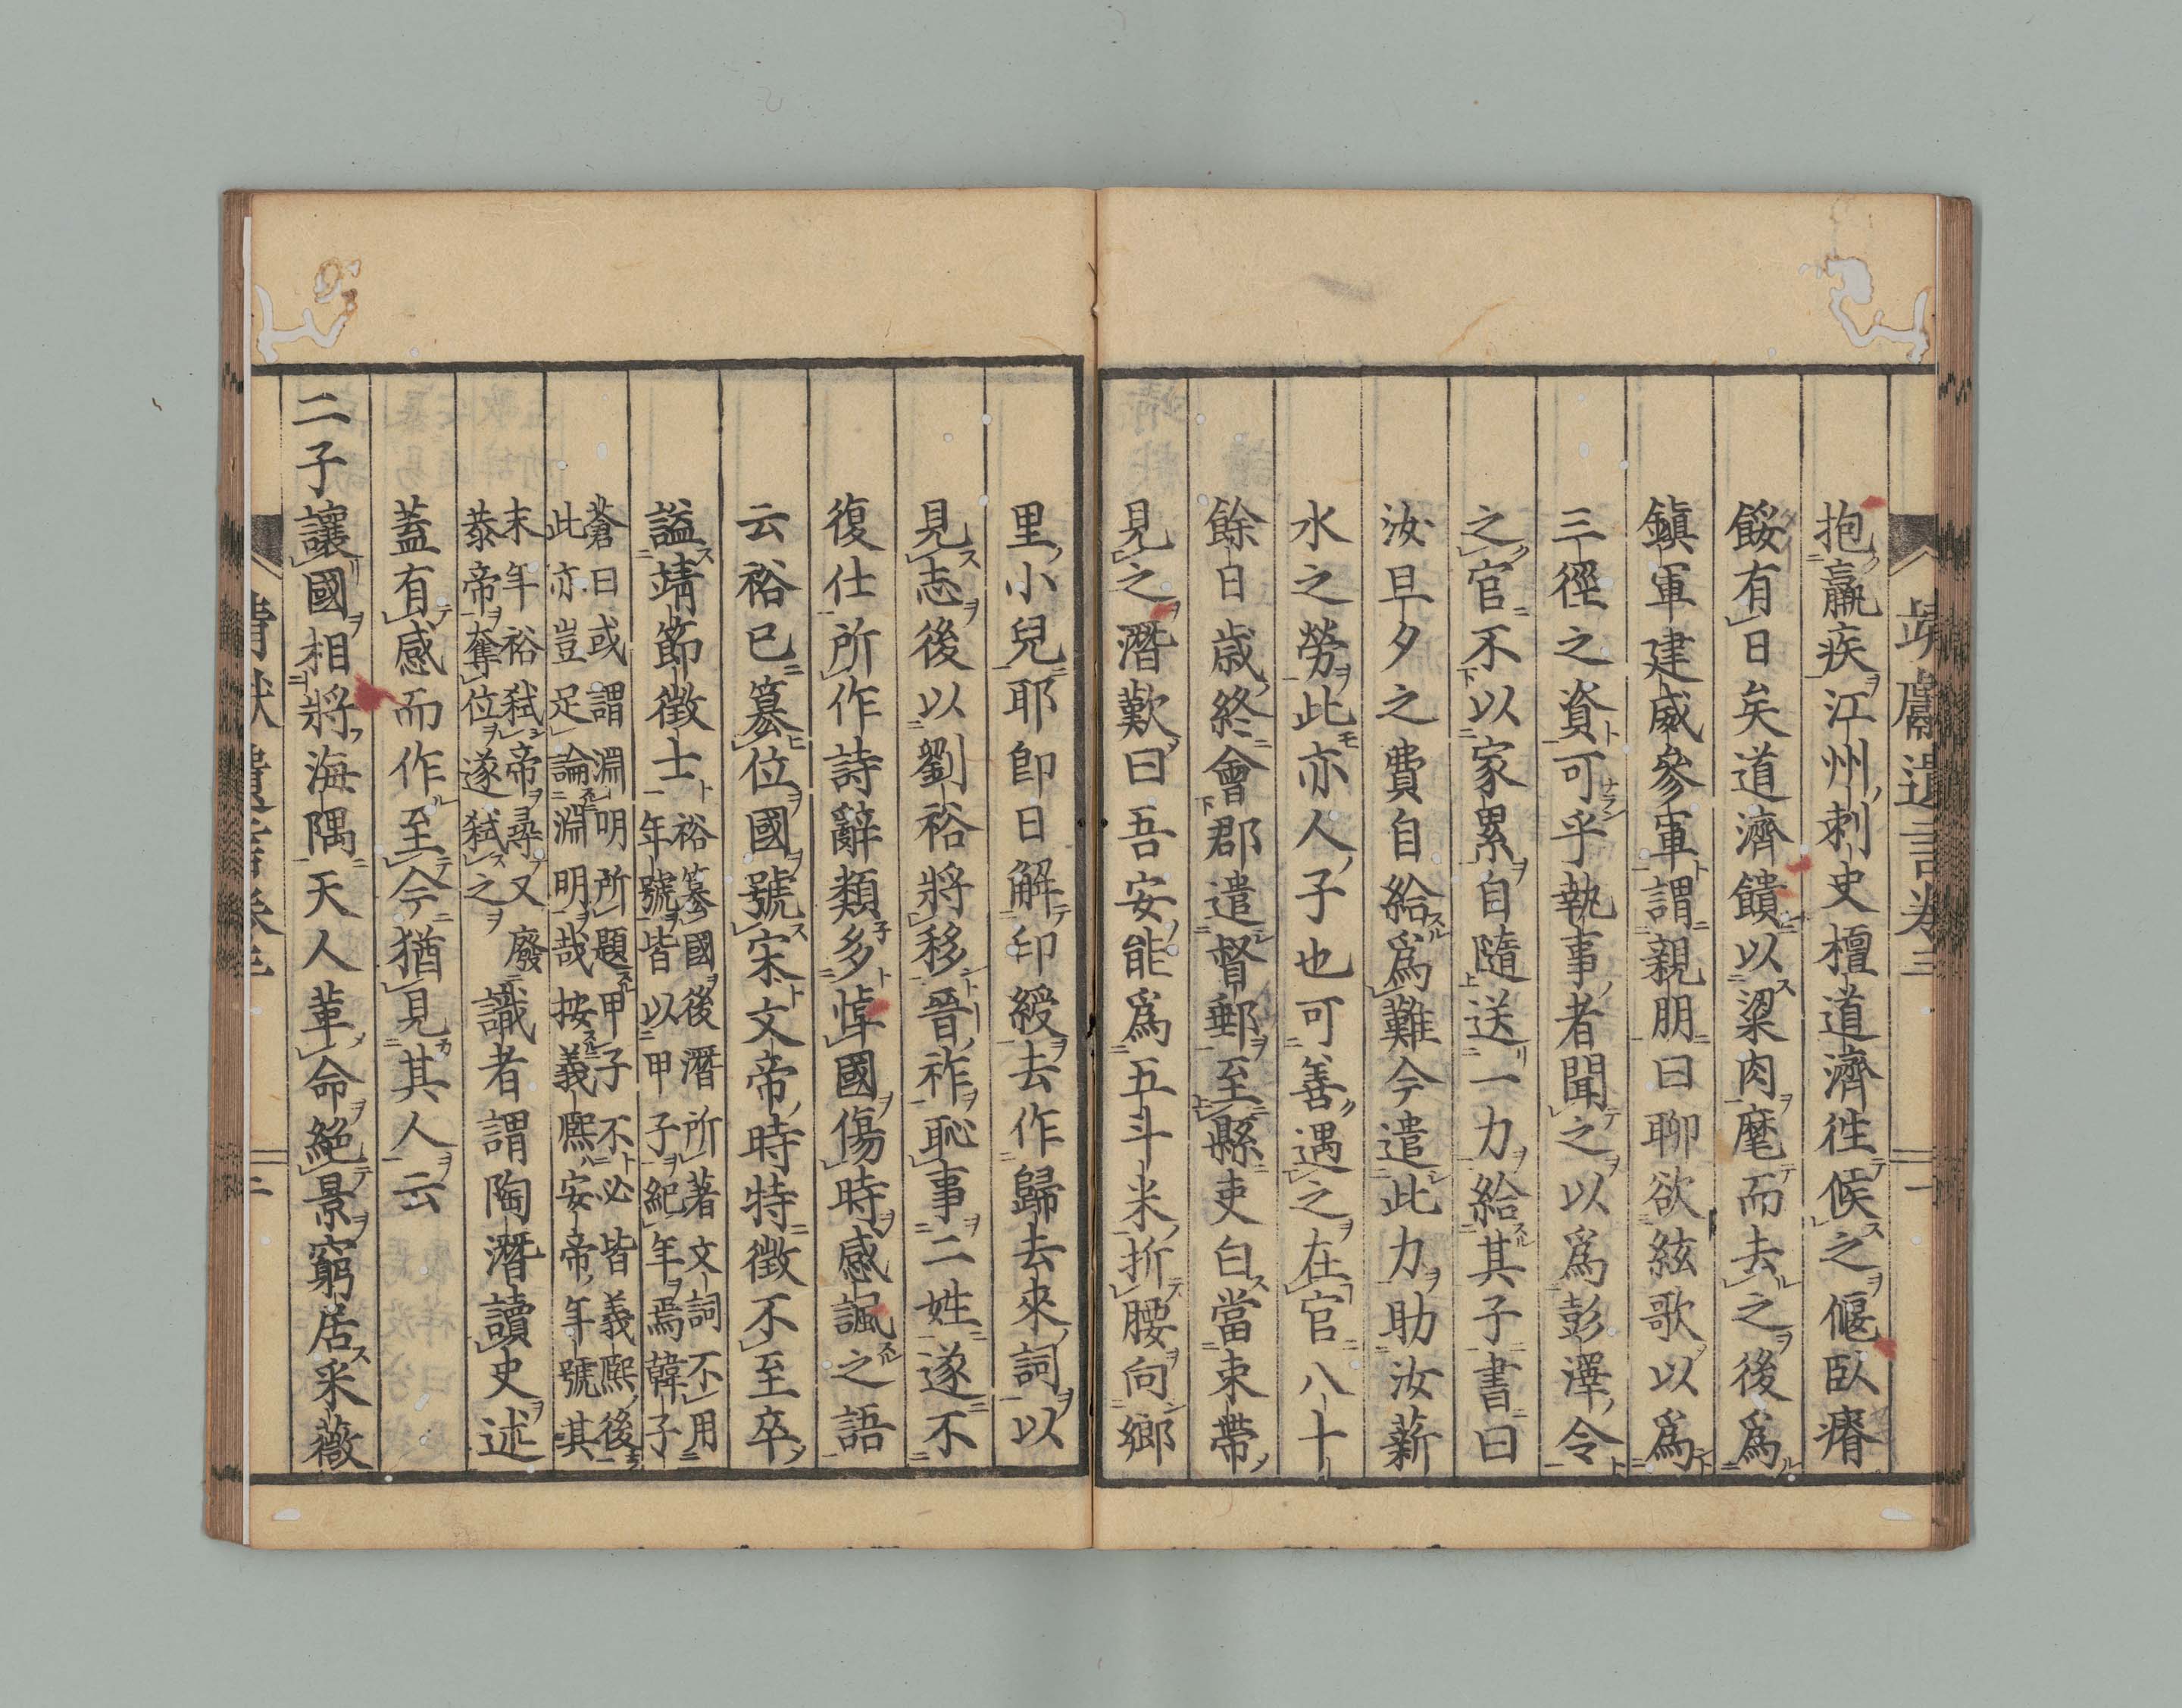 靖獻遺言卷三 一
抱羸疾江州刺史檀道濟往候之偃臥瘠
餒有日矣道濟饋以粱肉麾而去之後爲
鎭軍建威參軍謂親朋曰聊欲絃歌以爲
三徑之資可乎執事者聞之以爲彭澤令
之官不以家累自隨送一力給其子書曰
汝旦夕之費自給爲難今遣此力助汝薪
水之勞此亦人子也可善遇之在官八十
餘日歳終會郡遣督郵至縣吏白當束帶
見之潛歎曰吾安能爲五斗米折腰向鄉
里小兒耶卽日解印綬去作歸去來詞以
見志後以劉裕將移晉祚恥事二姓遂不
復仕所作詩辭類多悼國傷時感諷之語
云裕已簒位國號宋文帝時特徵不至卒
謚靖節徵士
裕簒國後潛所著文詞不用
年號皆以甲子紀年焉韓子
蒼曰或謂淵明所題甲子不必皆義熙後
此亦豈足論淵明哉按義熙安帝年號其
末年裕弑帝尋又廢
恭帝奪位遂弑之
識者謂陶潛讀史述
蓋有感而作至今猶見其人云
二子讓國相將海隅天人革命絕景窮居采薇
靖獻遺言卷三 二